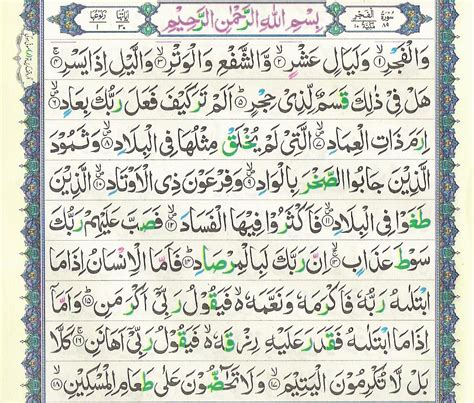 سُوْرَةُ الْفَجْرِ ٨٩ مَكِّيَّةٌ ١٠
بِسْمِ اللّٰهِ الرَّحْمٰنِ الرَّحِيْمِ
اٰيَاتُهَا ٣٠ رُكُوْعُهَا ١
وَالْفَجْرِ ۙ﴿۱﴾ وَلَيَالٍ عَشْرٍ ۙ﴿۲﴾ وَّالشَّفْعِ وَالْوَتْرِ ۙ﴿۳﴾ وَالَّيْلِ اِذَا يَسْرِ ۚ﴿۴﴾
هَلْ فِيْ ذٰلِكَ قَسَمٌ لِّذِيْ حِجْرٍ ؕ﴿۵﴾ اَلَمْ تَرَ كَيْفَ فَعَلَ رَبُّكَ بِعَادٍ ۪ۙ﴿۶﴾
اِرَمَ ذَاتِ الْعِمَادِ ۪ۙ﴿۷﴾ الَّتِيْ لَمْ يُخْلَقْ مِثْلُهَا فِي الْبِلَادِ ۪ۙ﴿۸﴾ وَثَمُوْدَ
الَّذِيْنَ جَابُوا الصَّخْرَ بِالْوَادِ ۪ۙ﴿۹﴾ وَفِرْعَوْنَ ذِي الْاَوْتَادِ ۪ۙ﴿۱۰﴾ الَّذِيْنَ
طَغَوْا فِي الْبِلَادِ ۪ۙ﴿۱۱﴾ فَاَكْثَرُوْا فِيْهَا الْفَسَادَ ۪ۙ﴿۱۲﴾ فَصَبَّ عَلَيْهِمْ رَبُّكَ
سَوْطَ عَذَابٍ ۚۙ﴿۱۳﴾ اِنَّ رَبَّكَ لَبِالْمِرْصَادِ ؕ﴿۱۴﴾ فَاَمَّا الْاِنْسَانُ اِذَا مَا
ابْتَلٰىهُ رَبُّهٗ فَاَكْرَمَهٗ وَنَعَّمَهٗ ۙ۬ فَيَقُوْلُ رَبِّيْۤ اَكْرَمَنِ ؕ﴿۱۵﴾ وَاَمَّاۤ
اِذَا مَا ابْتَلٰىهُ فَقَدَرَ عَلَيْهِ رِزْقَهٗ ۙ۬ فَيَقُوْلُ رَبِّيْۤ اَهَانَنِ ۚ﴿۱۶﴾ كَلَّا
بَلْ لَّا تُكْرِمُوْنَ الْيَتِيْمَ ۙ﴿۱۷﴾ وَلَا تَحٰٓضُّوْنَ عَلٰى طَعَامِ الْمِسْكِيْنِ ۙ﴿۱۸﴾